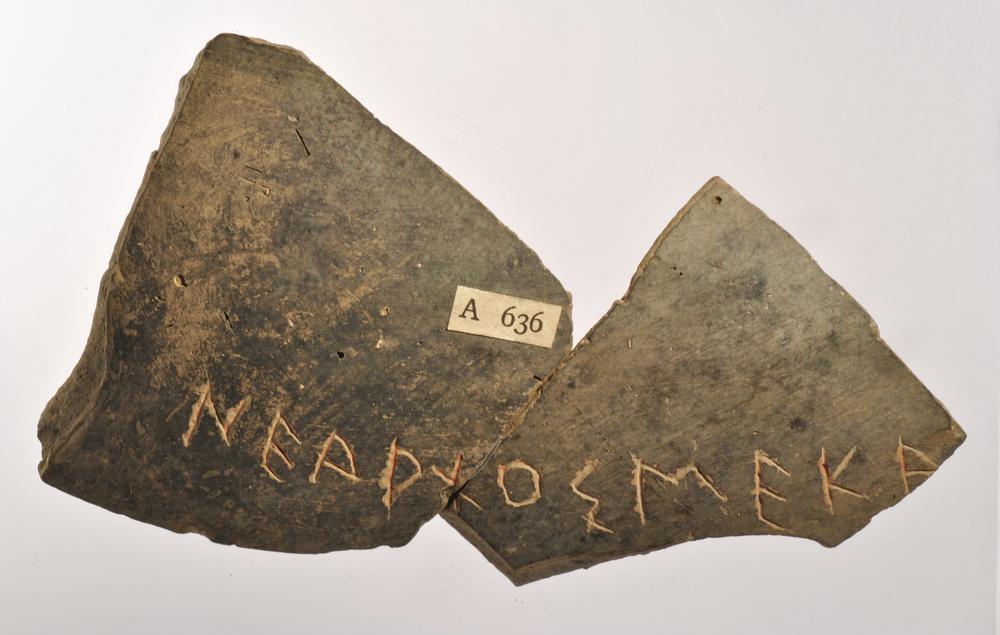 A 636
ΝΕΑΡΧΟΣΜΕΚΑ